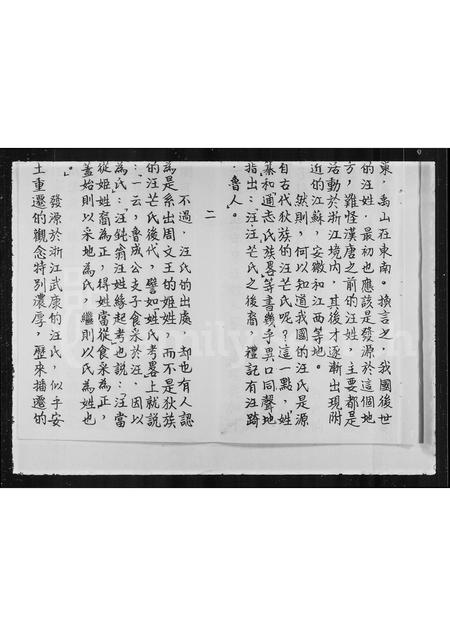 東,禺山在東南。換言之,我國後世
的汪姓,最初也應該是發源於這個地
方,難怪漢唐之前的汪姓,主要都是
活動於浙江境內,其後才逐漸出現附
近的江蘇,安徽和江西等地。
然則,何以知道我國的汪氏是源
自古代狄族的汪芒氏呢?這一點,姓
纂和通志氏族畧等書幾乎異口同聲地
指出:汪汪芒氏之後裔,禮記有汪踦
,魯人。
二
不過,汪氏的出處,却也有人認
為是系出周文王的姬姓,而不是狄族
的汪芒氏後代,譬如姓氏考畧上就說
:一云,魯成公支子食采於汪,因以
為氏;汪鈍翁汪姓緣起考也說:汪當
從姬姓裔為正,得姓當從食采為正,
蓋始則以采地為氏,繼則以氏為姓也
。
發源於浙江武康的汪氏,似乎安
土重遷的觀念特別濃厚,歷來播遷的